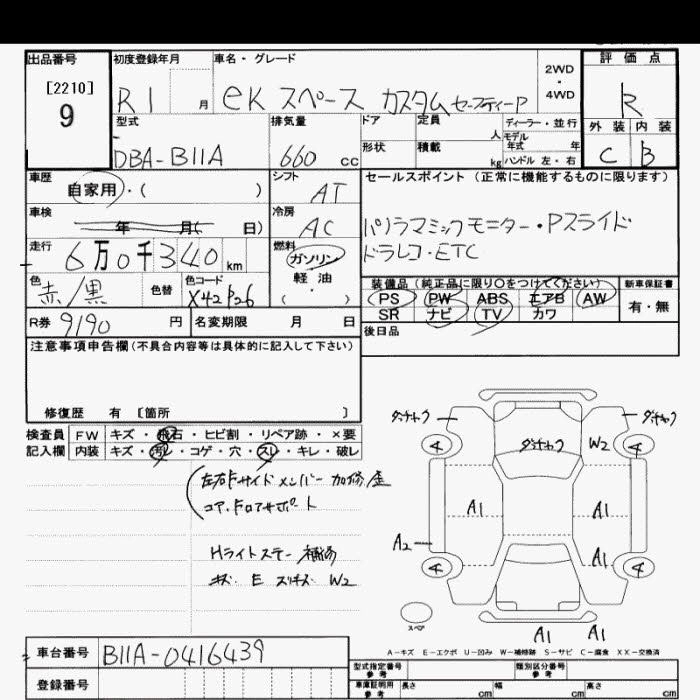 出品番号
[2210]
9
初度登録年月
R1 月
車名・グレード
eK スペース カスタム セーフティーP
2WD
・
4WD
評価点
R
外装 内装
C B
型式
DBA-B11A
排気量
660 cc
ドア
形状
定員
人
積載
kg
ディーラー・並行
モデル
年式 年
ハンドル 左・右
車歴
自家用・( )
シフト
AT
車検
年 月( 日)
冷房
AC
走行
6万0千340km
燃料
ガソリン
軽油
( )
色
赤/黒
色替
色コード
X42 P26
R券 9190 円
名変期限 月 日
セールスポイント (正常に機能するものに限ります)
パノラマミックモニター・Pスライド
ドラレコ・ETC
装備品(純正品に限り○をつけてください)
PS PW ABS エアB AW
SR ナビ TV カワ
新車保証書
有・無
後日品
注意事項申告欄(不具合内容等は具体的に記入して下さい)
修復歴 有 [箇所 ]
検査員
記入欄
FW キズ・飛石・ヒビ割・リペア跡・×要
内装 キズ・汚レ・コゲ・穴・スレ・キレ・破レ
コア
Hライトステー
キズ E W2
ダッチャク
ダッチャク
ダッチャク
W2
4
4
A1
A1
A2
A1
4
4
A1
A1
スペア
A-キズ E-エクボ U-凹み W-補修跡 S-サビ C-腐食 XX-交換済
車台番号 B11A-0416439
登録番号
型式指定番号
参考
類別区分番号
参考
車庫証明用
参考
長さ cm
幅 cm
高さ cm